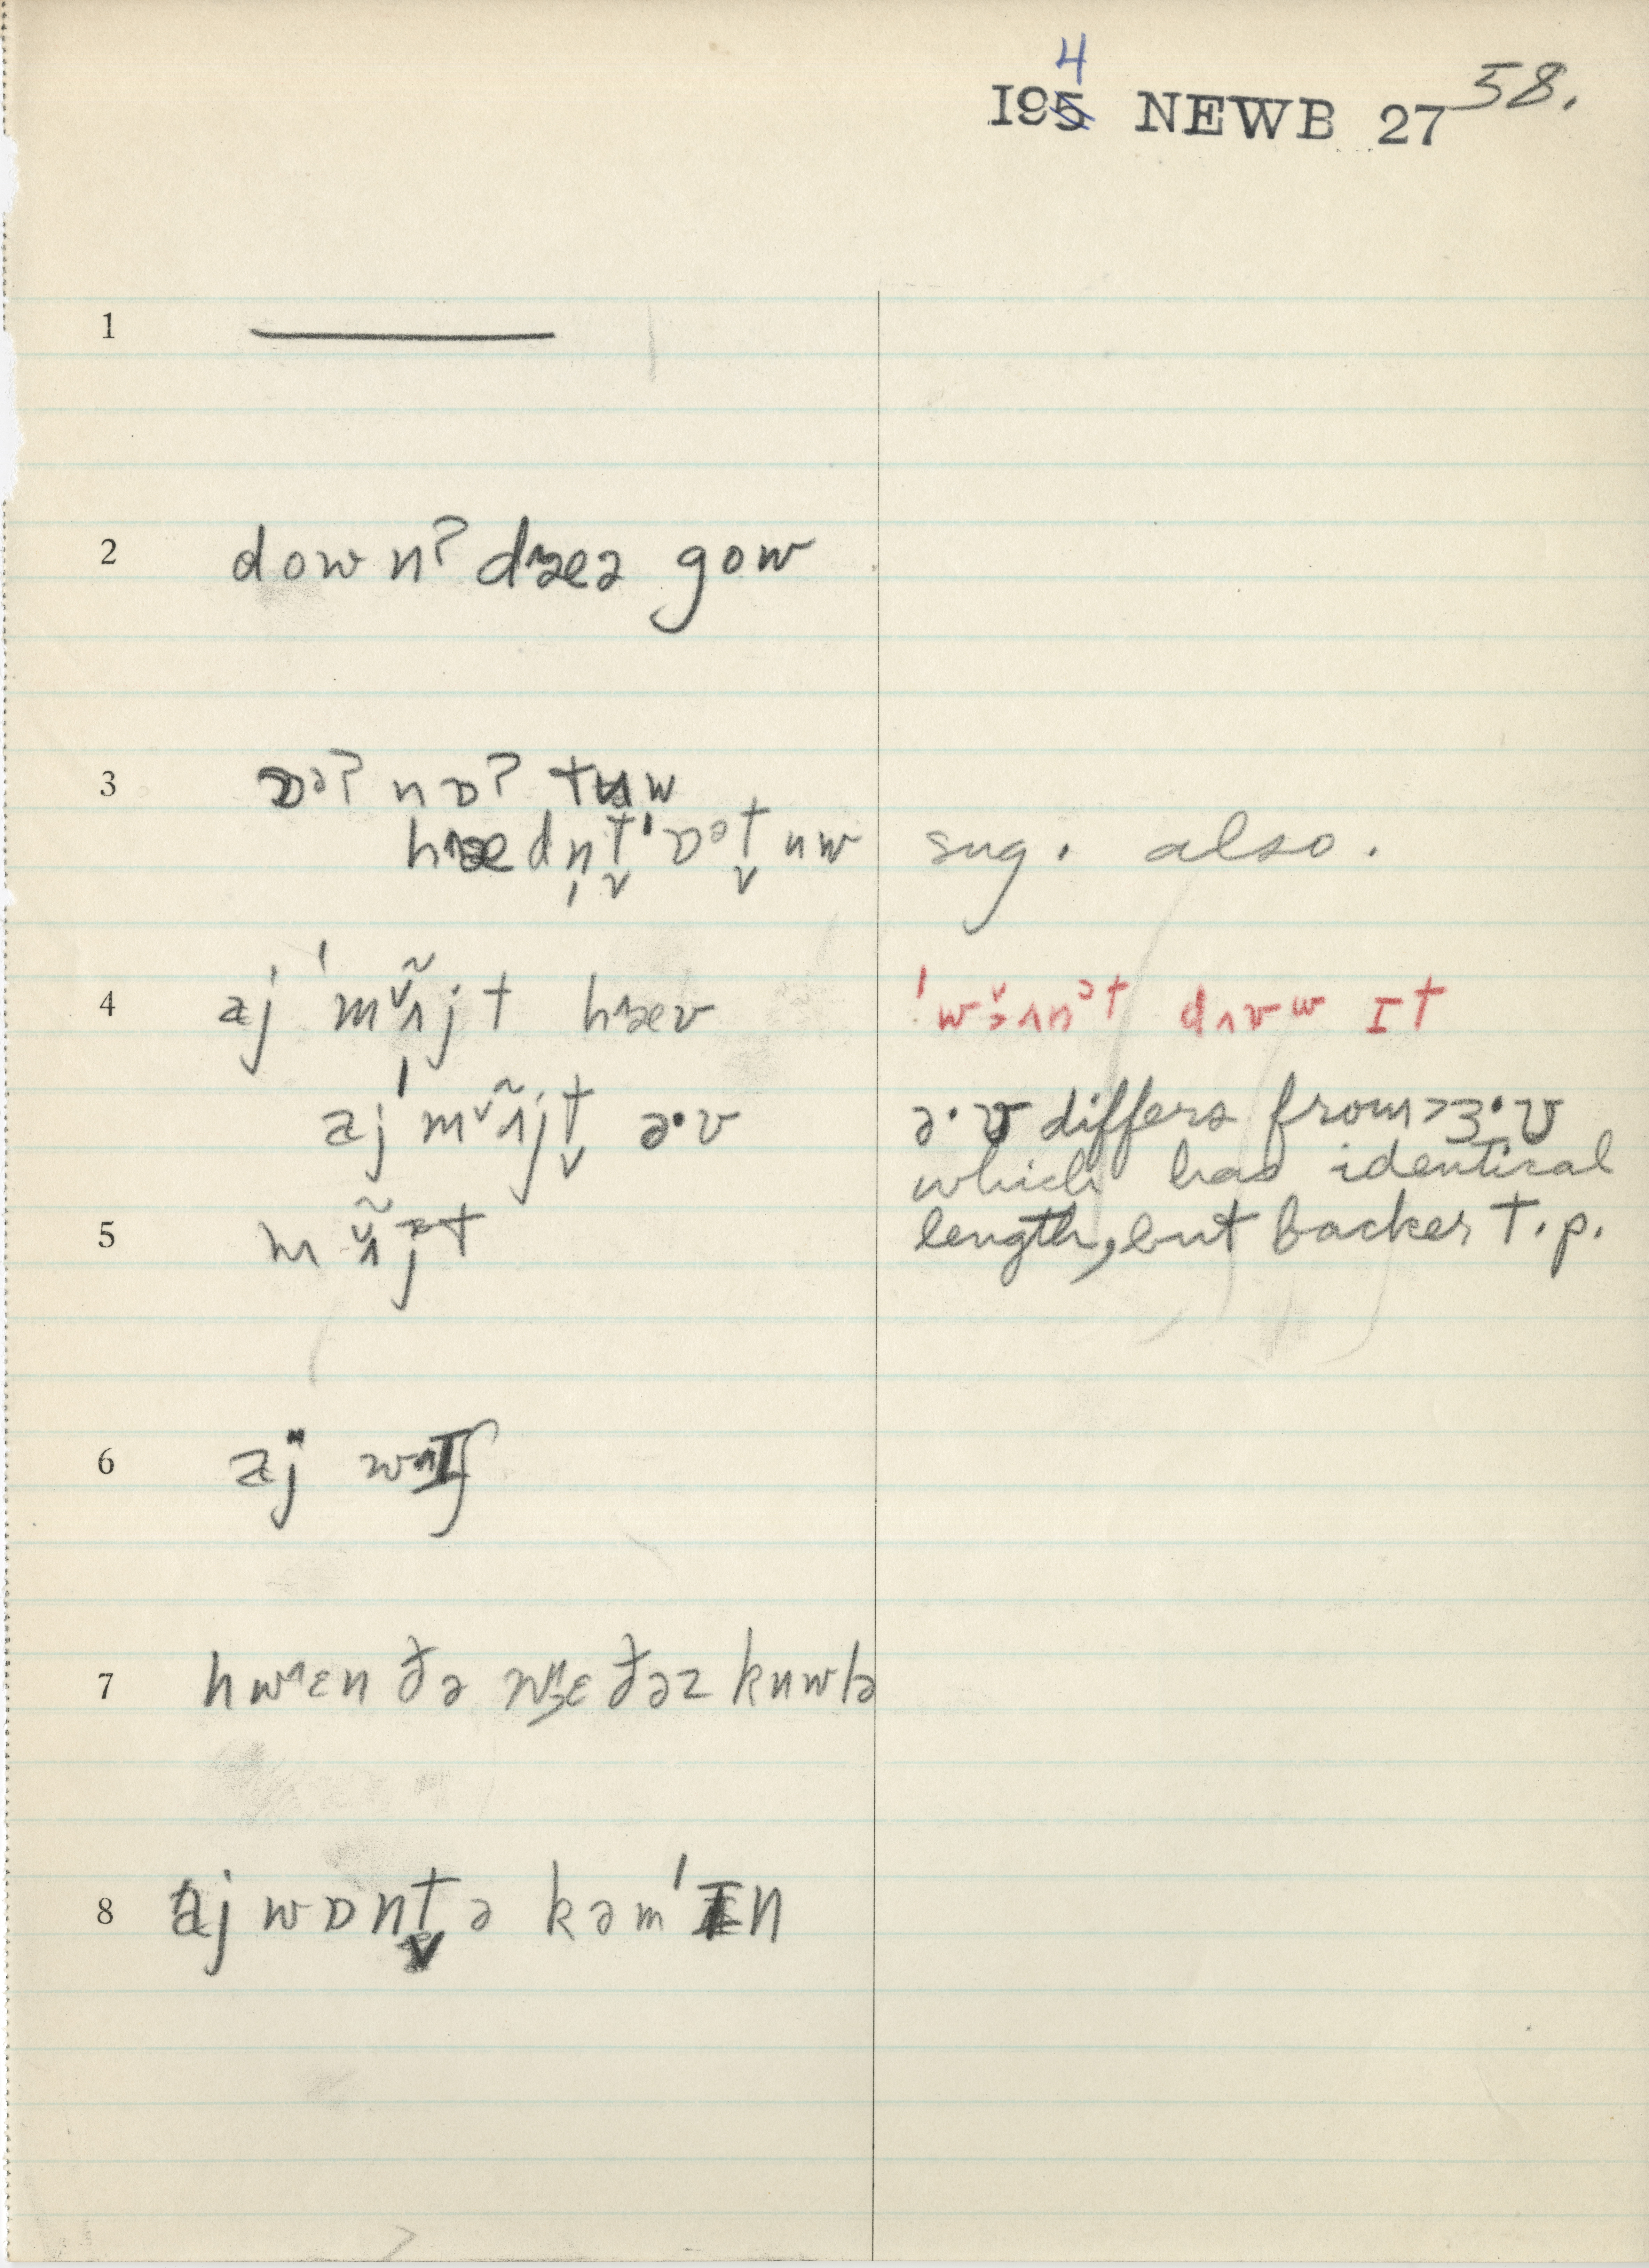 4
195 NEWB 27 58.
1
2 down? dæə gow
3 ɒə? nɒ? tʉw
hæednt̬ ˈɒət̬ uw sug. also.
4 aj ˈmʌ̃jt hæv ˈwɜʌnət dʌvw ɪt
aj ˈmʌ̃jt̬ ə·v ə·v differs from >ɜ·v
which has identical
5 mʌ̃jət length, but backer t.p.
6 aj wɪʃ
7 hwɛn ðə wɛðəz kuwlə
8 aj wɒnt̬ə kəmˈɪn